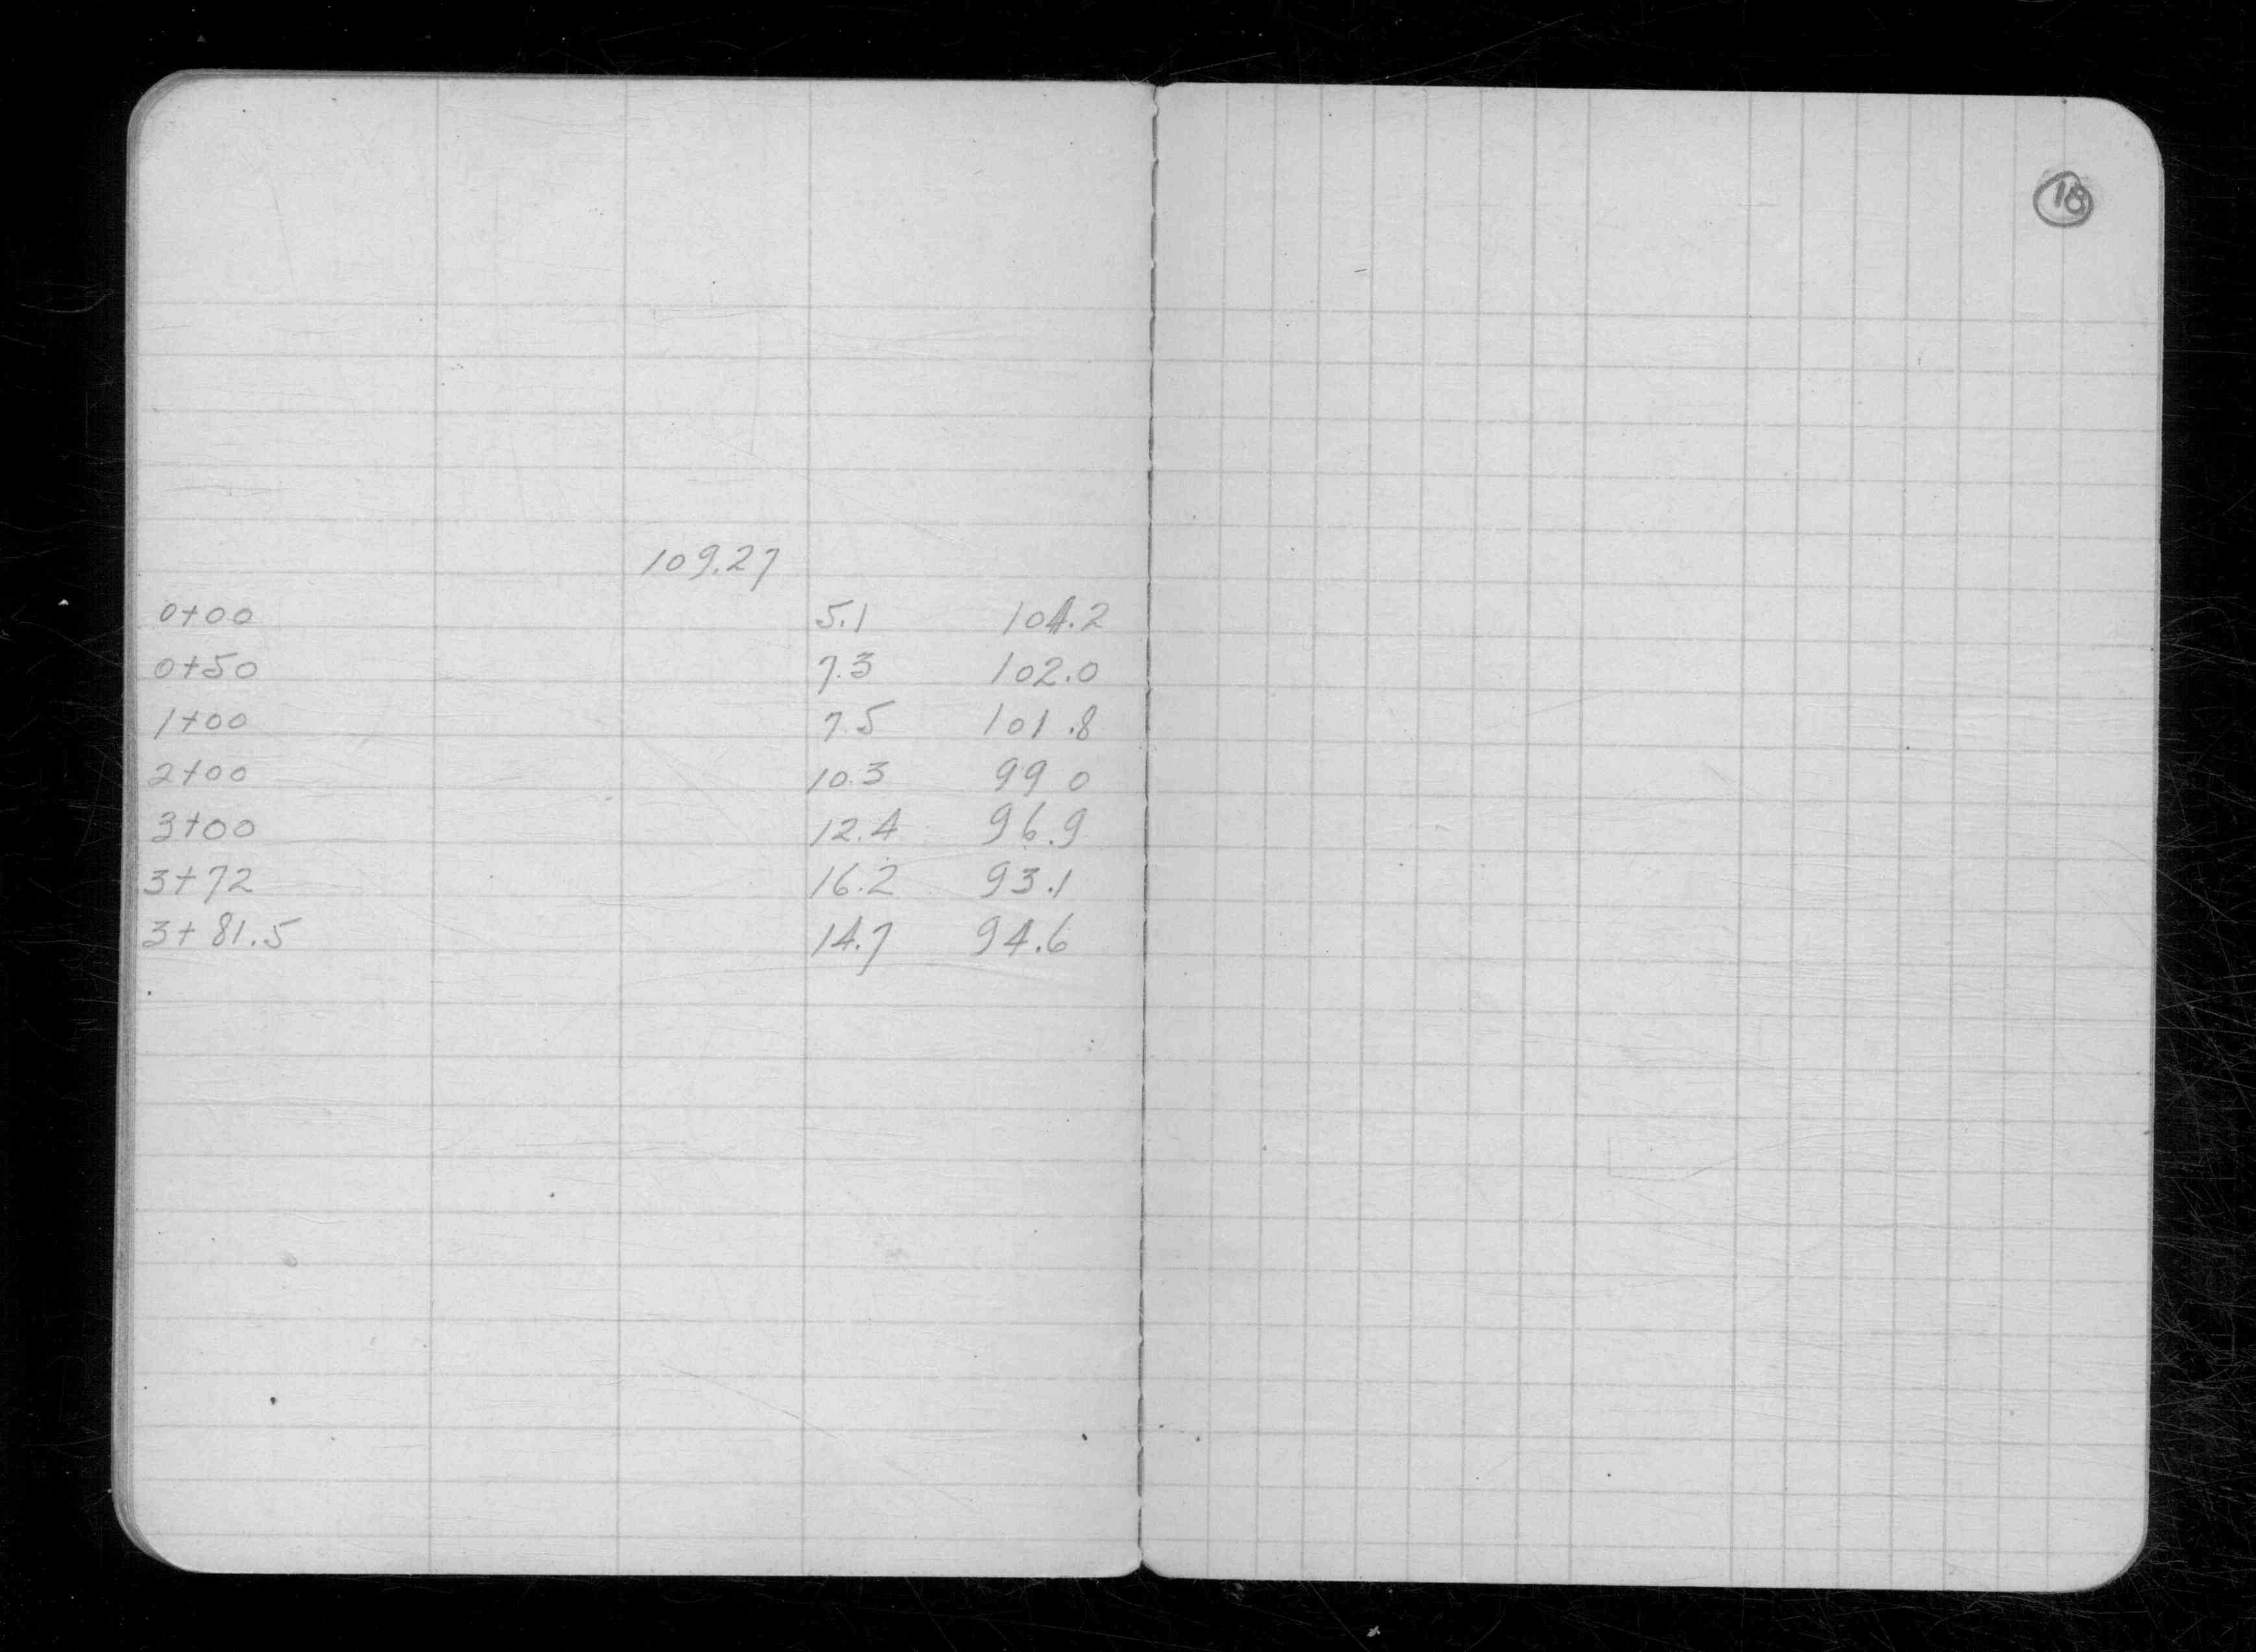 109.27
0+00 5.1 104.2
0+50 7.3 102.0
1+00 7.5 101.8
2+00 10.3 99 0
3+00 12.4 96.9
3+72 16.2 93.1
3+81.5 14.7 94.6
18